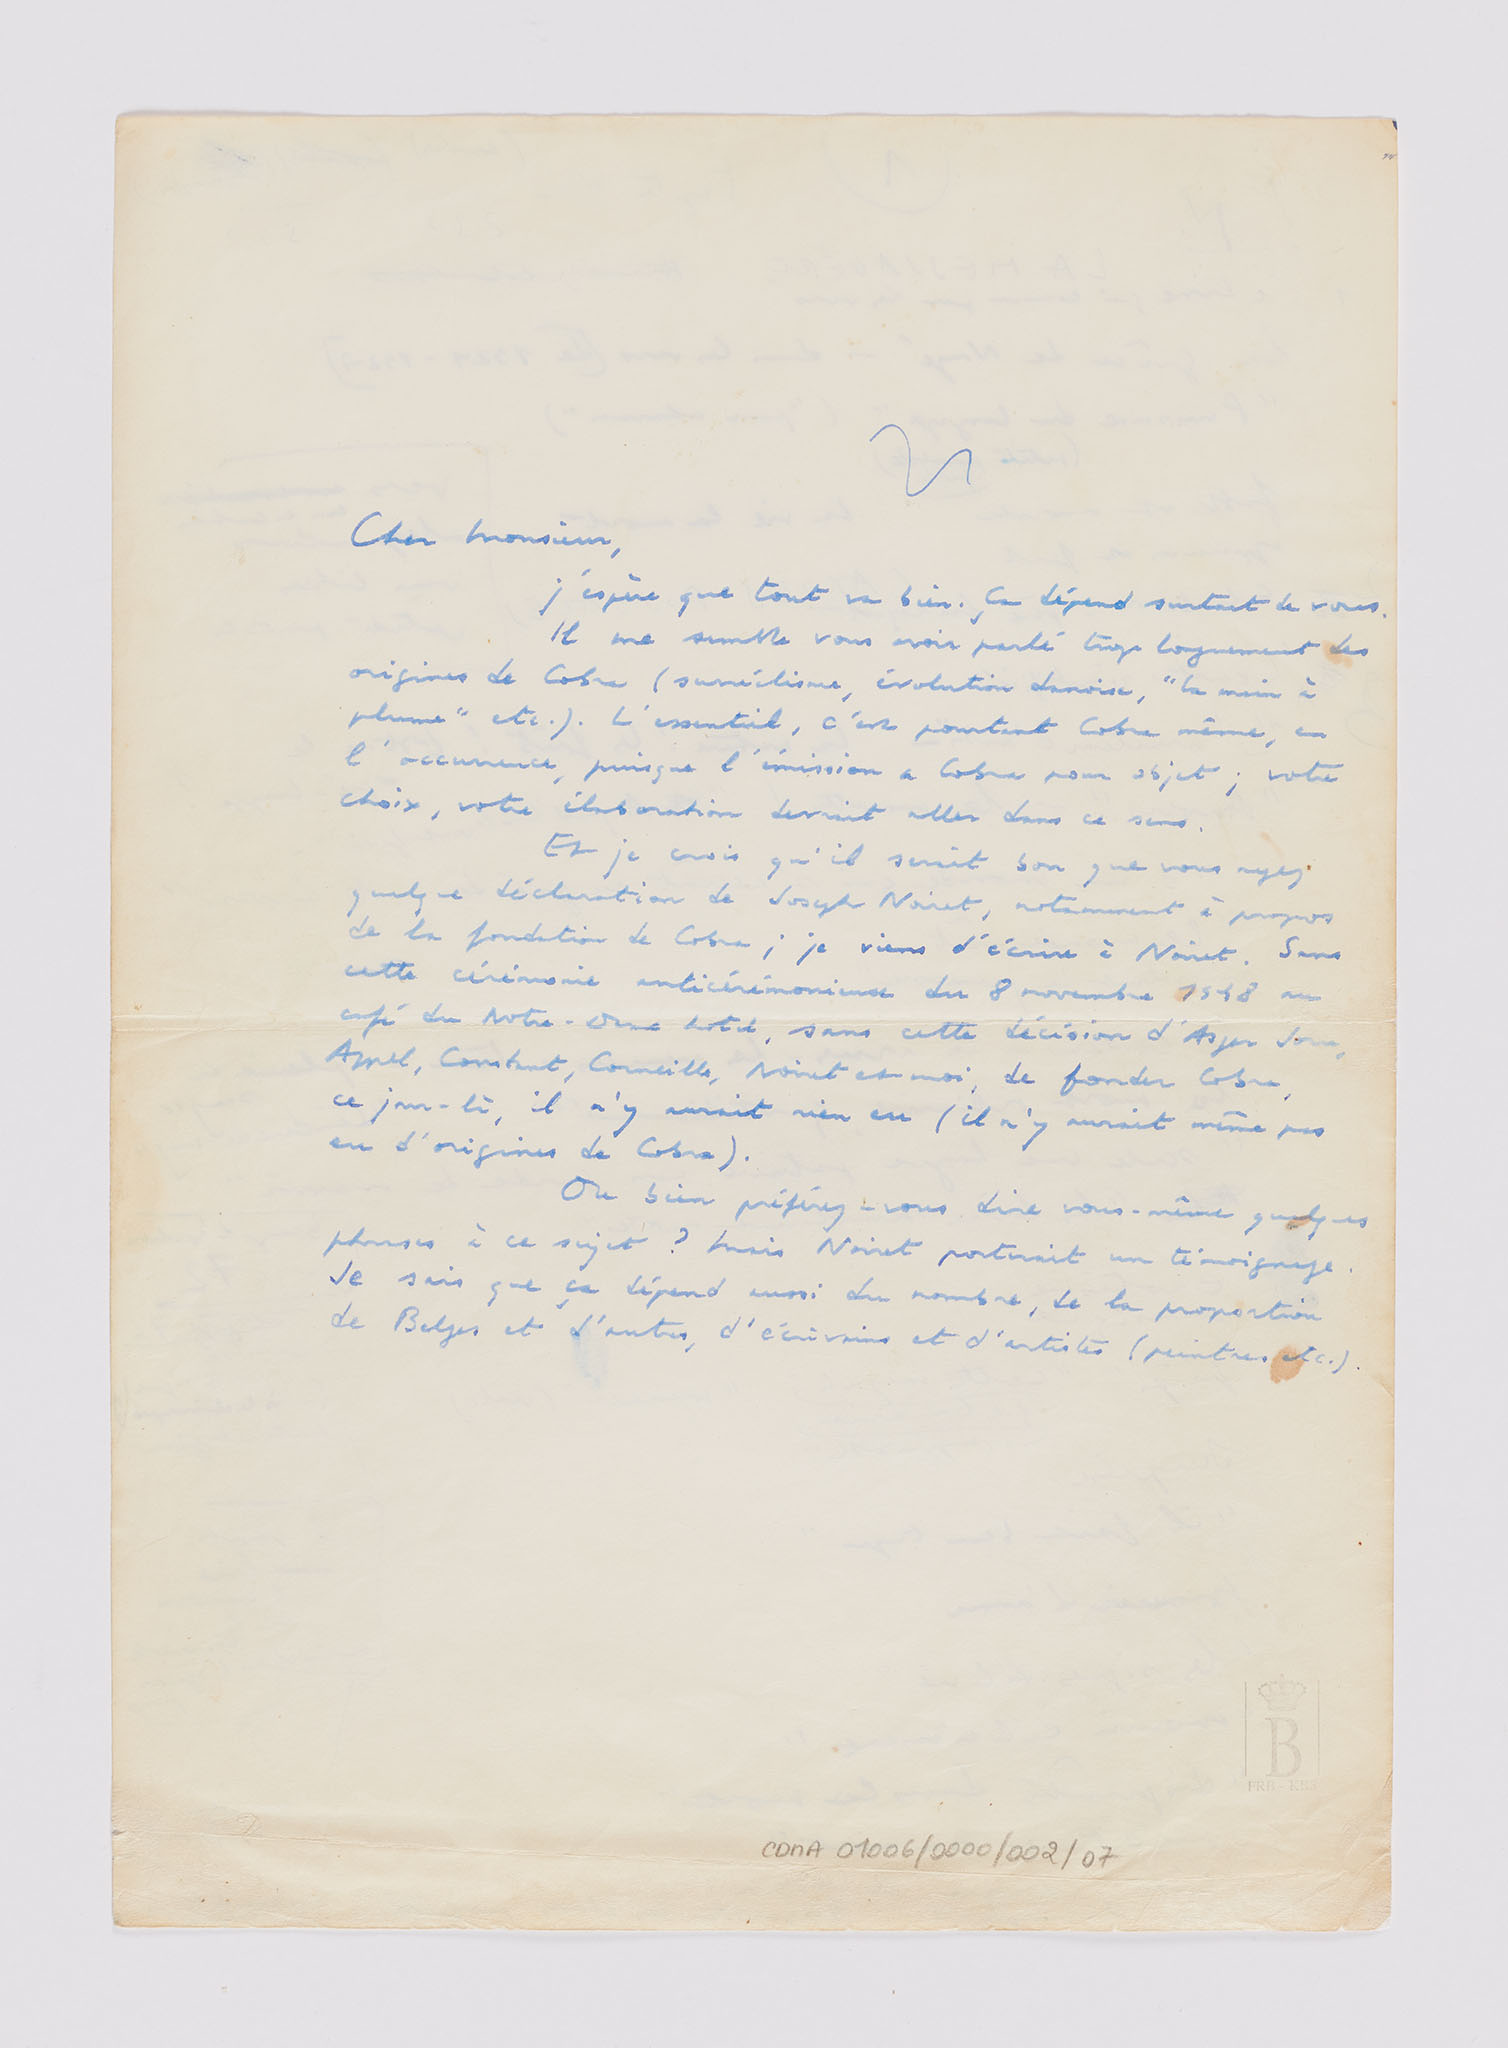 Cher Monsieur,
j'espère que tout va bien. Ça dépend surtout de vous.
Il me semble vous avoir parlé trop longuement des
origines de Cobra (surréalisme, évolution danoise, "la main à
plume" etc.). L'essentiel, c'est pourtant Cobra même, en
l'occurrence, puisque l'émission a Cobra pour objet ; votre
choix, votre élaboration devrait aller dans ce sens.
Et je crois qu'il serait bon que vous ayez
quelque déclaration de Joseph Noiret, notamment à propos
de la fondation de Cobra ; je viens d'écrire à Noiret. Sans
cette cérémonie anticérémonieuse du 8 novembre 1948 au
café du Notre-Dame hôtel, sans cette décision d'Asger Jorn,
Appel, Constant, Corneille, Noiret et moi, de fonder Cobra,
ce jour-là, il n'y aurait rien eu (il n'y aurait même pas
eu d'origines de Cobra).
Ou bien préférez-vous dire vous-même quelques
phrases à ce sujet ? Mais Noiret porterait un témoignage.
Je sais que ça dépend aussi du nombre, de la proportion
de Belges et d'autres, d'écrivains et d'artistes (peintres etc.).
B
FRB - KBS
CDMA 01006/0000/002/07